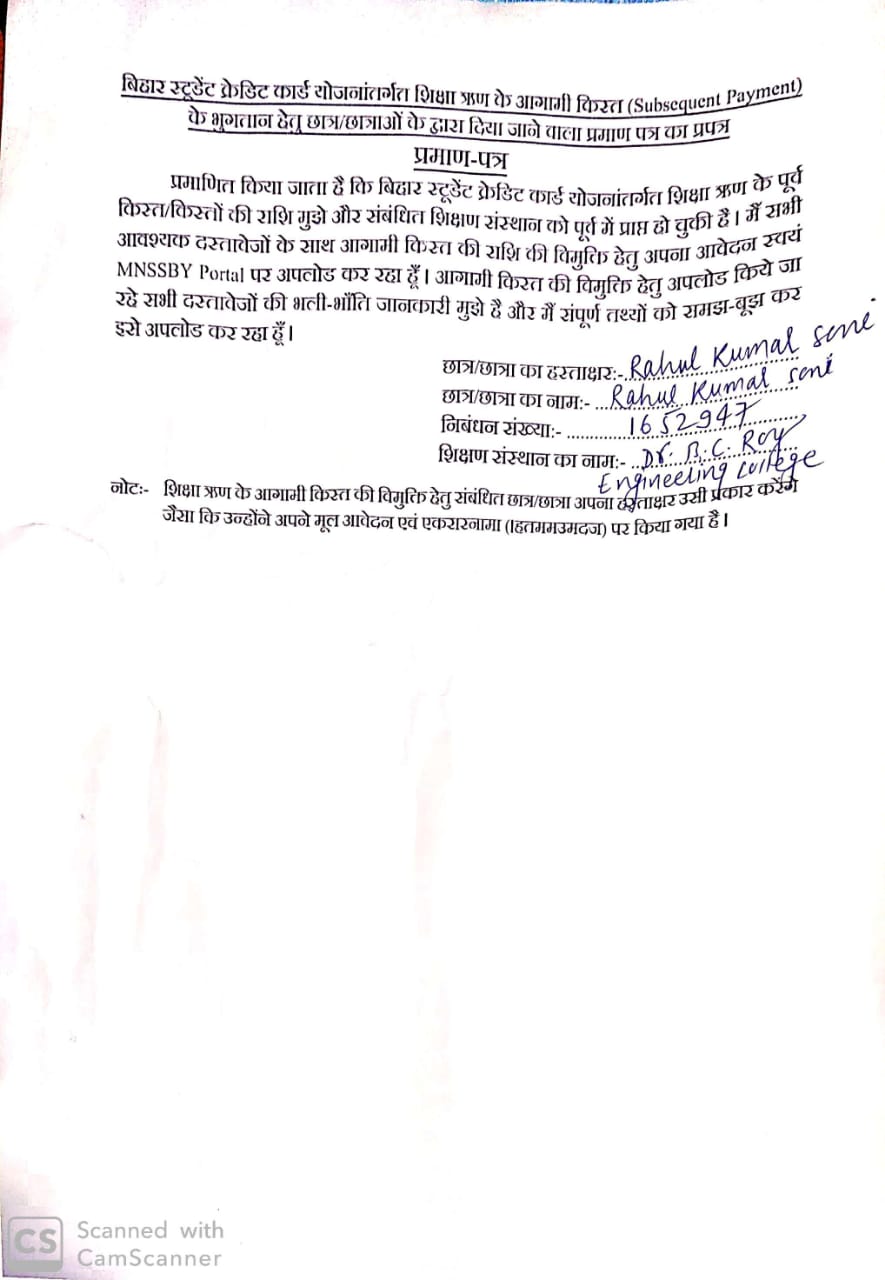 बिहार स्टूडेंट क्रेडिट कार्ड योजनांतर्गत शिक्षा ऋण के आगामी किस्त (Subsequent Payment)
के भुगतान हेतु छात्र/छात्राओं के द्वारा दिया जाने वाला प्रमाण पत्र का प्रपत्र
प्रमाण-पत्र
प्रमाणित किया जाता है कि बिहार स्टूडेंट क्रेडिट कार्ड योजनांतर्गत शिक्षा ऋण के पूर्व
किस्त/किस्तों की राशि मुझे और संबंधित शिक्षण संस्थान को पूर्व में प्राप्त हो चुकी है। मैं सभी
आवश्यक दस्तावेजों के साथ आगामी किस्त की राशि की विमुक्ति हेतु अपना आवेदन स्वयं
MNSSBY Portal पर अपलोड कर रहा हूँ। आगामी किस्त की विमुक्ति हेतु अपलोड किये जा
रहे सभी दस्तावेजों की भली-भाँति जानकारी मुझे है और मैं संपूर्ण तथ्यों को समझ-बूझ कर
इसे अपलोड कर रहा हूँ।
छात्र/छात्रा का हस्ताक्षर:- Rahul Kumar Soni
छात्र/छात्रा का नाम:- Rahul Kumar Soni
निबंधन संख्या:- 1652947
शिक्षण संस्थान का नाम:- Dr. B.C. Roy
Engineering College
नोट:- शिक्षा ऋण के आगामी किस्त की विमुक्ति हेतु संबंधित छात्र/छात्रा अपना हस्ताक्षर उसी प्रकार करेंगे
जैसा कि उन्होंने अपने मूल आवेदन एवं एकरारनामा (।हतममउमदज) पर किया गया है।
CS Scanned with
CamScanner